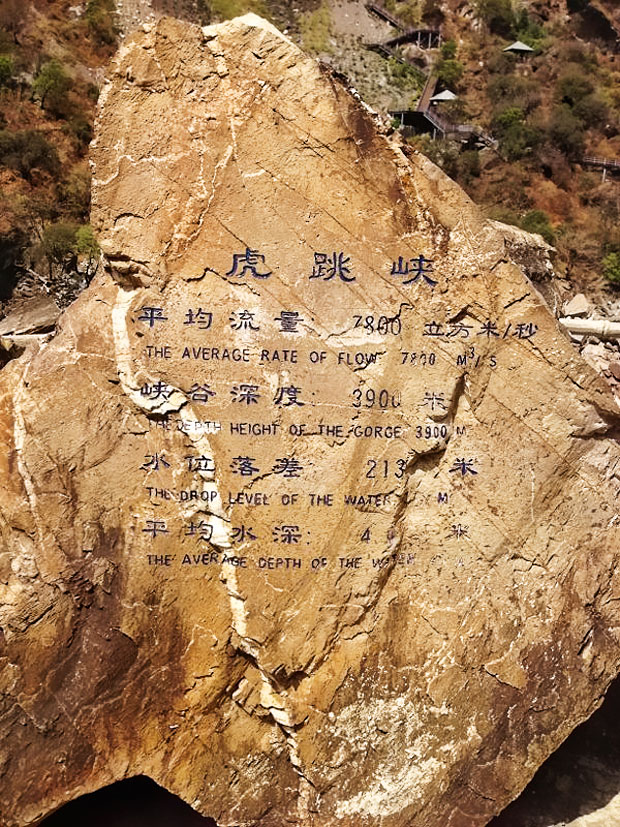 虎跳峡
平均流量 7800 立方米/秒
THE AVERAGE RATE OF FLOW 7800 M³/S
峡谷深度: 3900 米
THE DEPTH HEIGHT OF THE GORGE 3900 M
水位落差: 213 米
THE DROP LEVEL OF THE WATER M
平均水深: 米
THE AVERAGE DEPTH OF THE